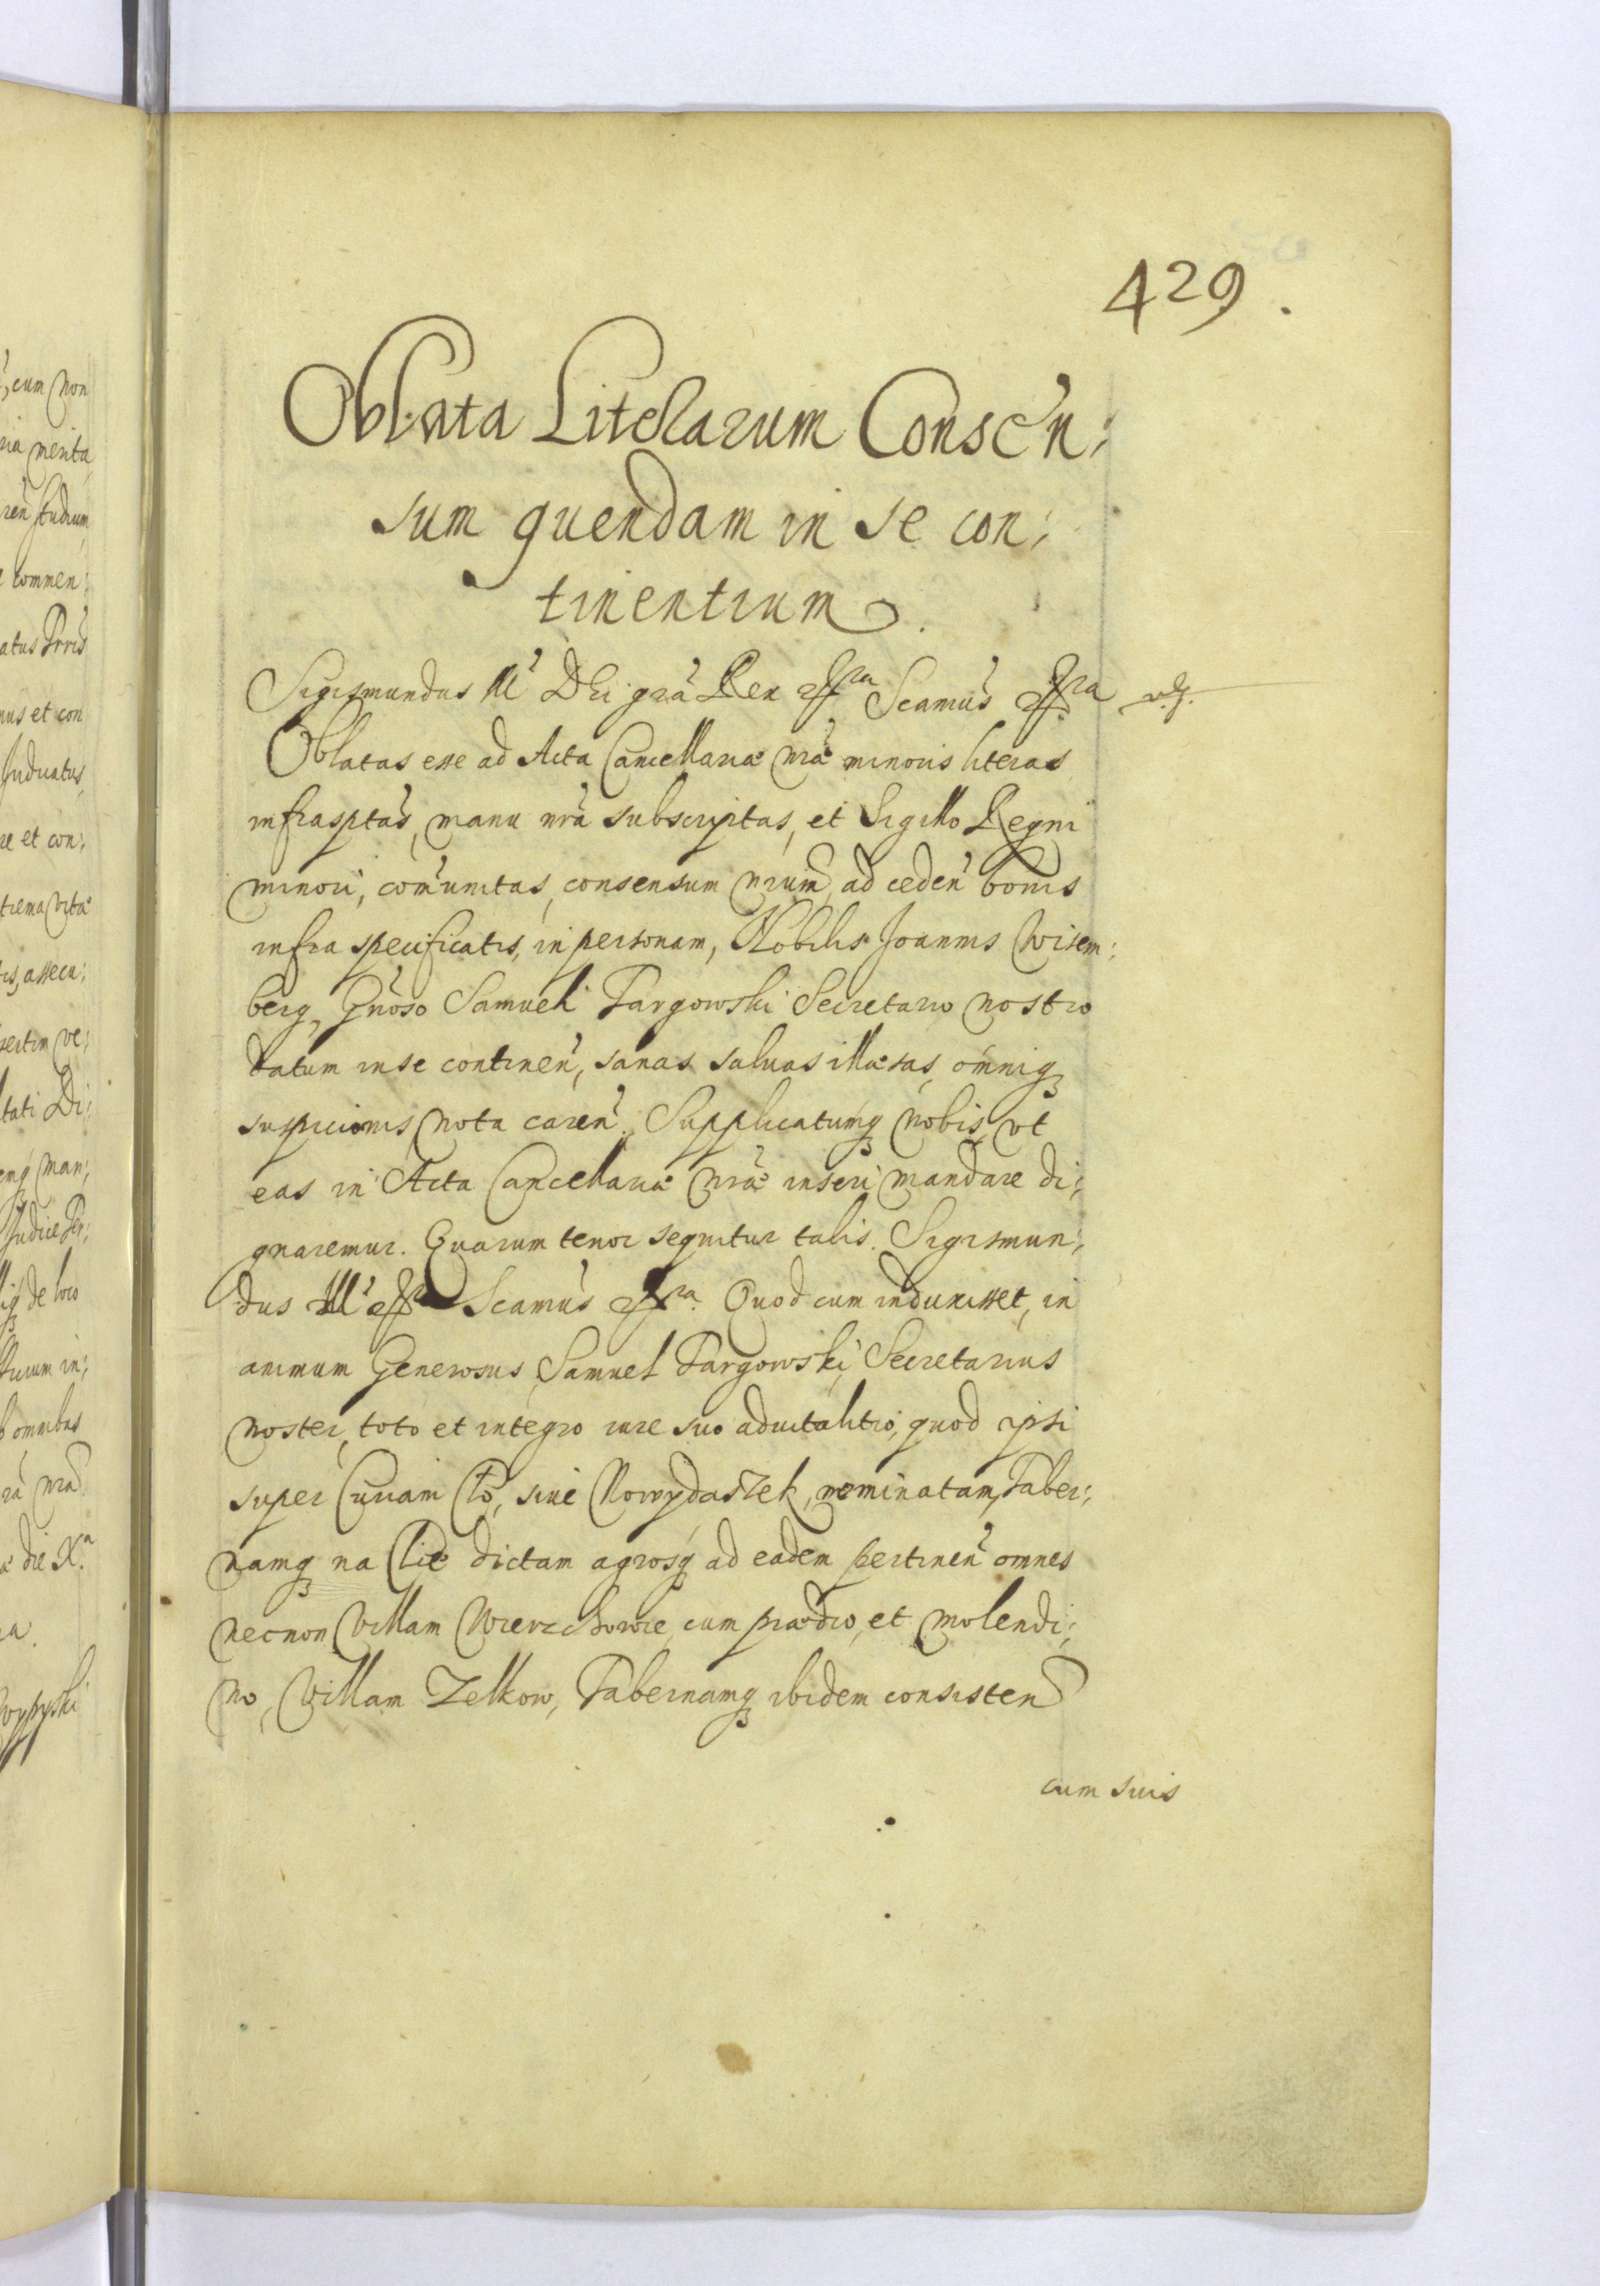 429.
Oblata Literarum Consen:
sum quendam in se con:
tinentium.
Sigismundus III Dei grã Rex Scamus
Oblatas esse ad Acta Cancellariæ nræ minoris literas
infrasptas, manu nrã subscriptas, et Sigillo Regni
minori, com̃unitas, consensum nrum, ad ceden̄ bonis
infra specificatis, in personam, Nobilis Joannis Wisem:
berg, Gnoso Samueli Targowski Secretario nostro
datum in se continen̄, sanas saluas illæsas, omniq
suspicionis nota caren̄. Supplicatumq nobis, vt
eas in Acta Cancellariæ nræ inseri mandare di:
gnaremur. Quarum tenor sequitur talis. Sigismun:
dus III Scamus Quod cum induxisset, in
animum Generosus Samuel Targowski, Secretarius
noster, toto et integro iure suo aduitalitio, quod ipsi
super Curiam Clo, siue Nowydaszek, nominatam, Taber:
namq na Clie dictam agrosq ad eadem pertinen̄ omnes
necnon Villam Wierzchowie, cum prædio, et molendi:
no, Villam Zelkow, Tabernamq ibidem consisten
cum suis
, cum non
merita
ren̄ studium
commen:
mus et con
Iuducatus
re et con:
assecu:
tati Di:
man:
de loco
omnibus